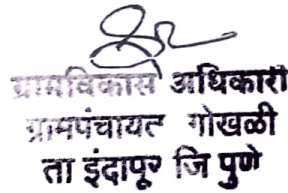 ग्रामविकास अधिकारी
ग्रामपंचायत गोखळी
ता इंदापूर जि पुणे